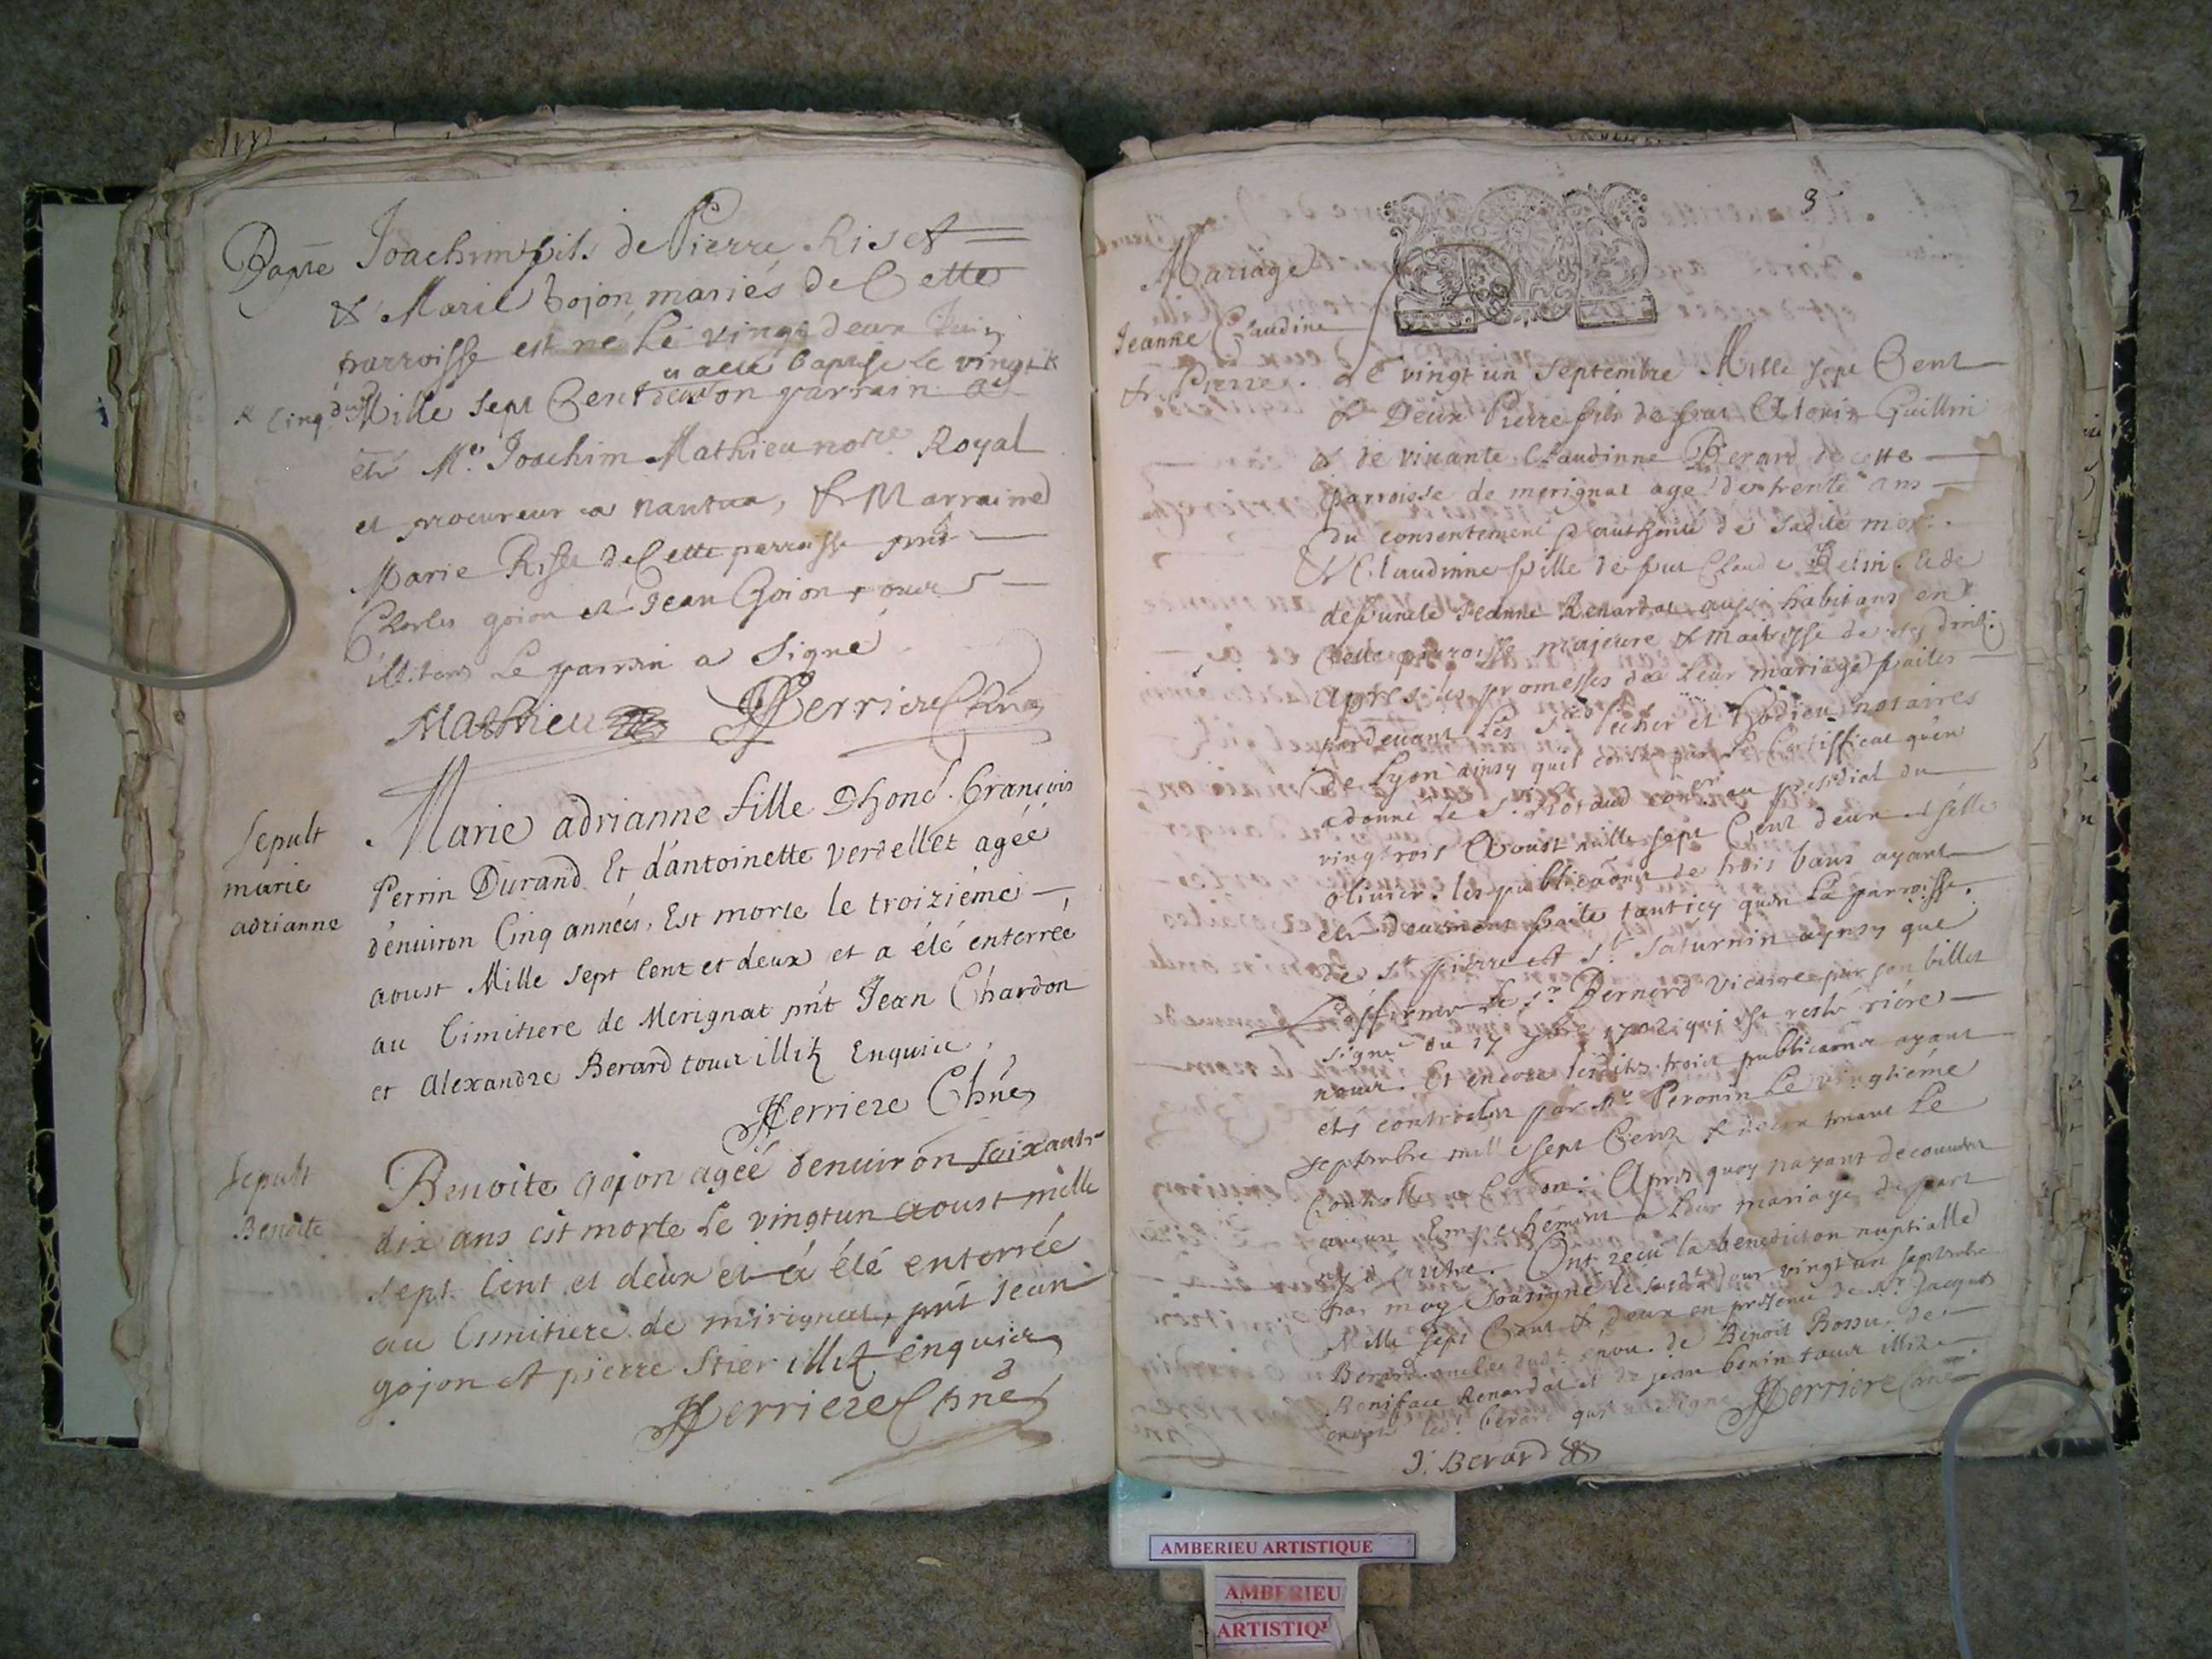 Baptē Joachim fils de Pierre Riset
& Marie Gojon mariés de Cette
parroisse est né le vingt deux Juin
u a eté Baptisé le vingt
cinq dud Mille sept Cent deux son parrain a
eté Me. Joachim Mathieu notre Royal
et procureur a nantua, & Marraine
Marie Riset de Cette parroisse pnt
Charles gojon et Jean Gojon tous
illiteres Le parrain a signé
Mathieu JJ Perriere Chne
Sepult
marie
adrianne
Marie adrianne fille Dhone. François
Perrin Durand Et d'antoinette verdellet agéé
d'enuiron Cinq années, Est morte le troiziéme
aoust Mille sept Cent et deux et a été enterréé
au Cimitiere de Merignat pnt Jean Chardon
et Alexandre Berard tous illitz Enquis
JPerriere Chne
Sepult
Benoite
Benoite gojon agéé denuiron soixante
dix ans est morte Le vingtun aoust mille
sept Cent et deux et a été enterréé
au Cimitiere de mirignat, pnt Jean
gojon et pierre Stier illitz enquis
3
JPerriere Chne
3
Mariage
Jeanne Claudine
& Pierre.
Le vingt un septembre Mille sept Cent
& Deux Pierre fils de feu Guillin
& de viuante Claudinne Berard de cette
parroisse de merignat agé de trente ans
du consentement & authorité de sadite
& Claudinne fille de feu Claude Belin & de
defuncte Jeanne Renardat aussi habitans en
Cette parroisse majeure & maitresse de ses droits
apres les promesses de leur mariage faites
pardeuant Les Srs et notaires
de Lyon ainsy quil conste par le Certifficat qu'en
a donné le Sr. au presidial du
vingtrois Aoust mille sept Cent deux
oliuier. les publicaôns de trois bans ayant
eté deuement faite tanticy qu'en La parroisse.
de St. pierre et St. Saturnin aynsy que
L'affirme le sr. Bernard vicaire par son billet
signé du 17 7bre 1702 qui est resté riére
nous. Et encore lesdites trois publicaôns ayant
étés controlées par Mr. Peronin Le vingtiéme
septembre mille sept Cent & deux tenant Le
Controlle a Cerdon. Apres quoy nayant decouuert
aucun Empechement a leur mariage de part
ny d'autre. Ont reçu la benediction nuptialle
par moy soussigné le susdt. jour vingt un septembre
Mille sept Cent & deux en presence de Mr. Jaques
Berard oncle dudt. epou. de Benoit Bossu, de
Boniface Renardat et de jean benin tous illitz
exepté led. berard qui a signé JPerriere Chne
J. Berard
AMBERIEU ARTISTIQUE
AMBERIEU
ARTISTIQ